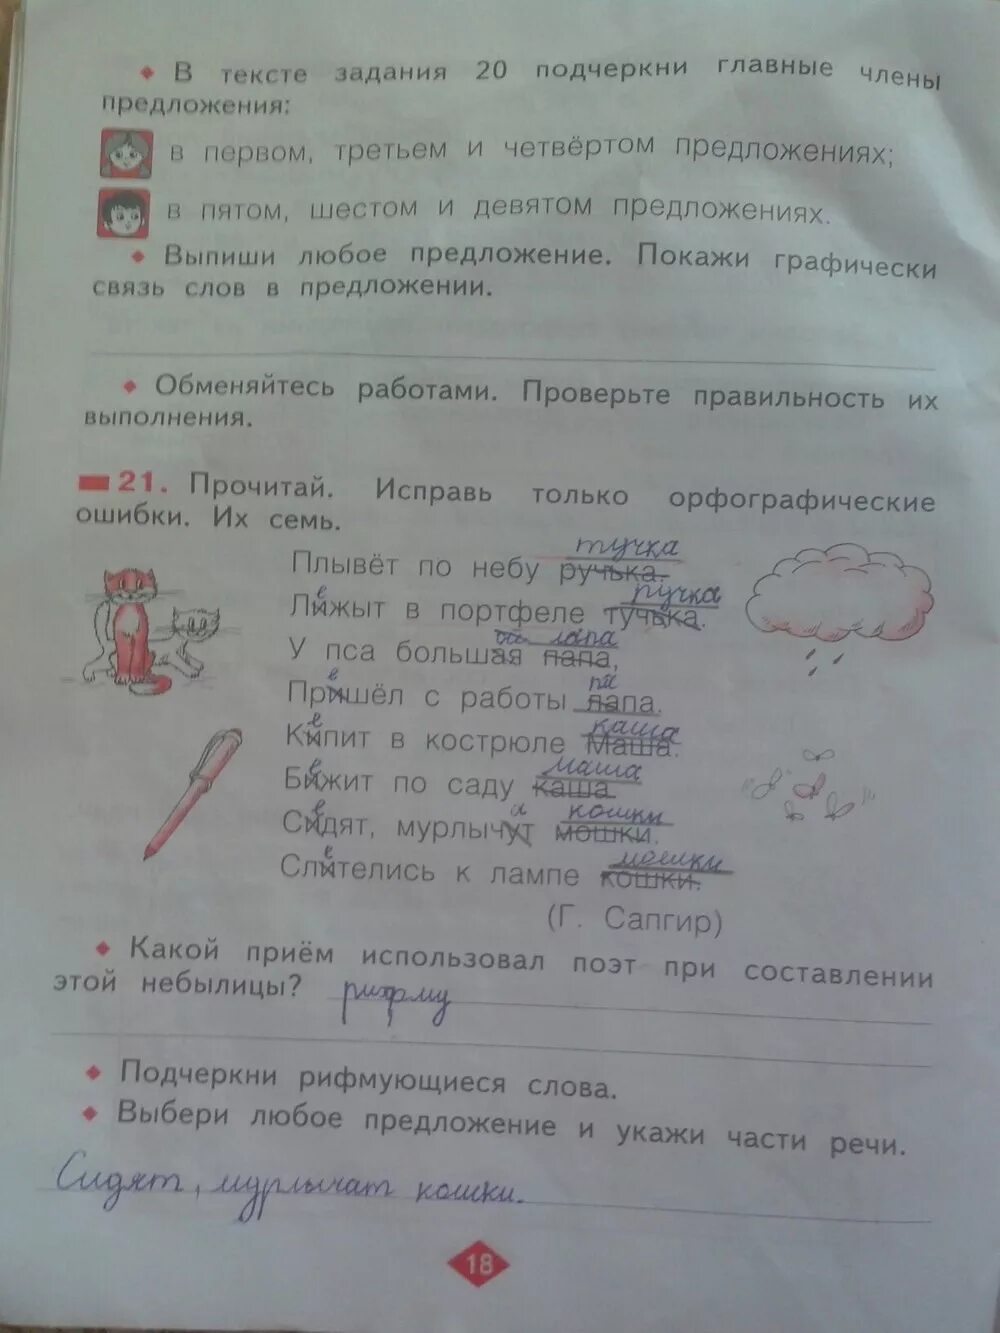 • В тексте задания 20 подчеркни главные члены
предложения:
в первом, третьем и четвёртом предложениях;
в пятом, шестом и девятом предложениях.
• Выпиши любое предложение. Покажи графически
связь слов в предложении.
• Обменяйтесь работами. Проверьте правильность их
выполнения.
21. Прочитай. Исправь только орфографические
ошибки. Их семь.
тучка
Плывёт по небу ручька.
е ручка
Лижыт в портфеле тучька.
лапа
У пса большая папа,
е па
Пришёл с работы лапа.
е каша
Кипит в кострюле Маша.
е маша
Бижит по саду каша.
е а кошки
Сидят, мурлычут мошки.
е мошки
Слителись к лампе кошки.
(Г. Сапгир)
• Какой приём использовал поэт при составлении
этой небылицы? рифму
• Подчеркни рифмующиеся слова.
• Выбери любое предложение и укажи части речи.
Сидят, мурлычат кошки.
18